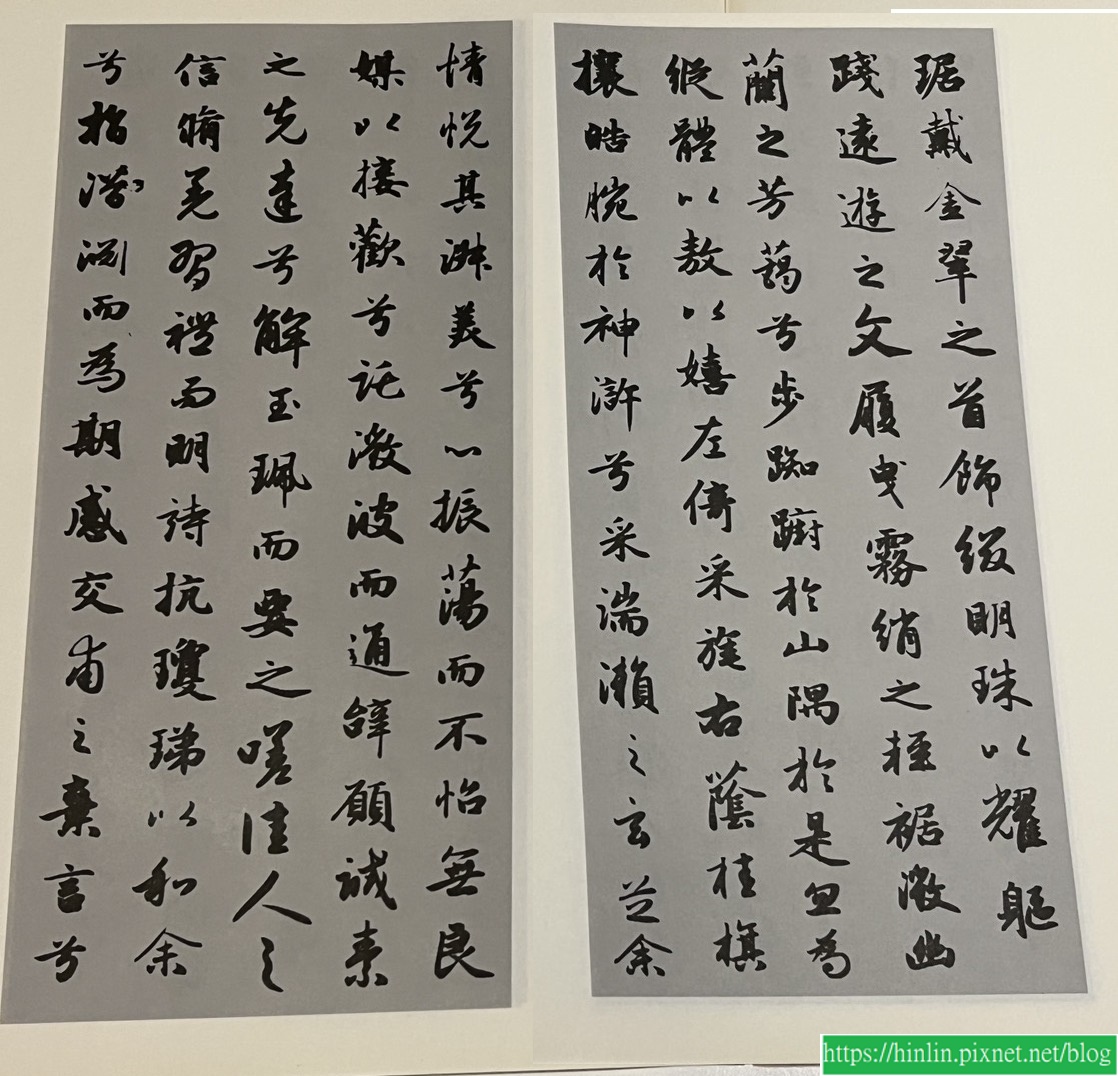 琚戴金翠之首飾綴明珠以耀軀
踐遠遊之文履曳霧綃之輕裾微幽
蘭之芳藹兮步踟躕於山隅於是忽焉
縱體以敖以嬉左倚采旄右蔭桂旗
攘皓腕於神滸兮采湍瀨之玄芝余
情悅其淑美兮心振蕩而不怡無良
媒以接歡兮託微波而通辭願誠素
之先達兮解玉珮而要之嗟佳人之
信脩羌習禮而明詩抗瓊珶以和余
兮指潛淵而為期感交甫之棄言兮
https://hinlin.pixnet.net/blog